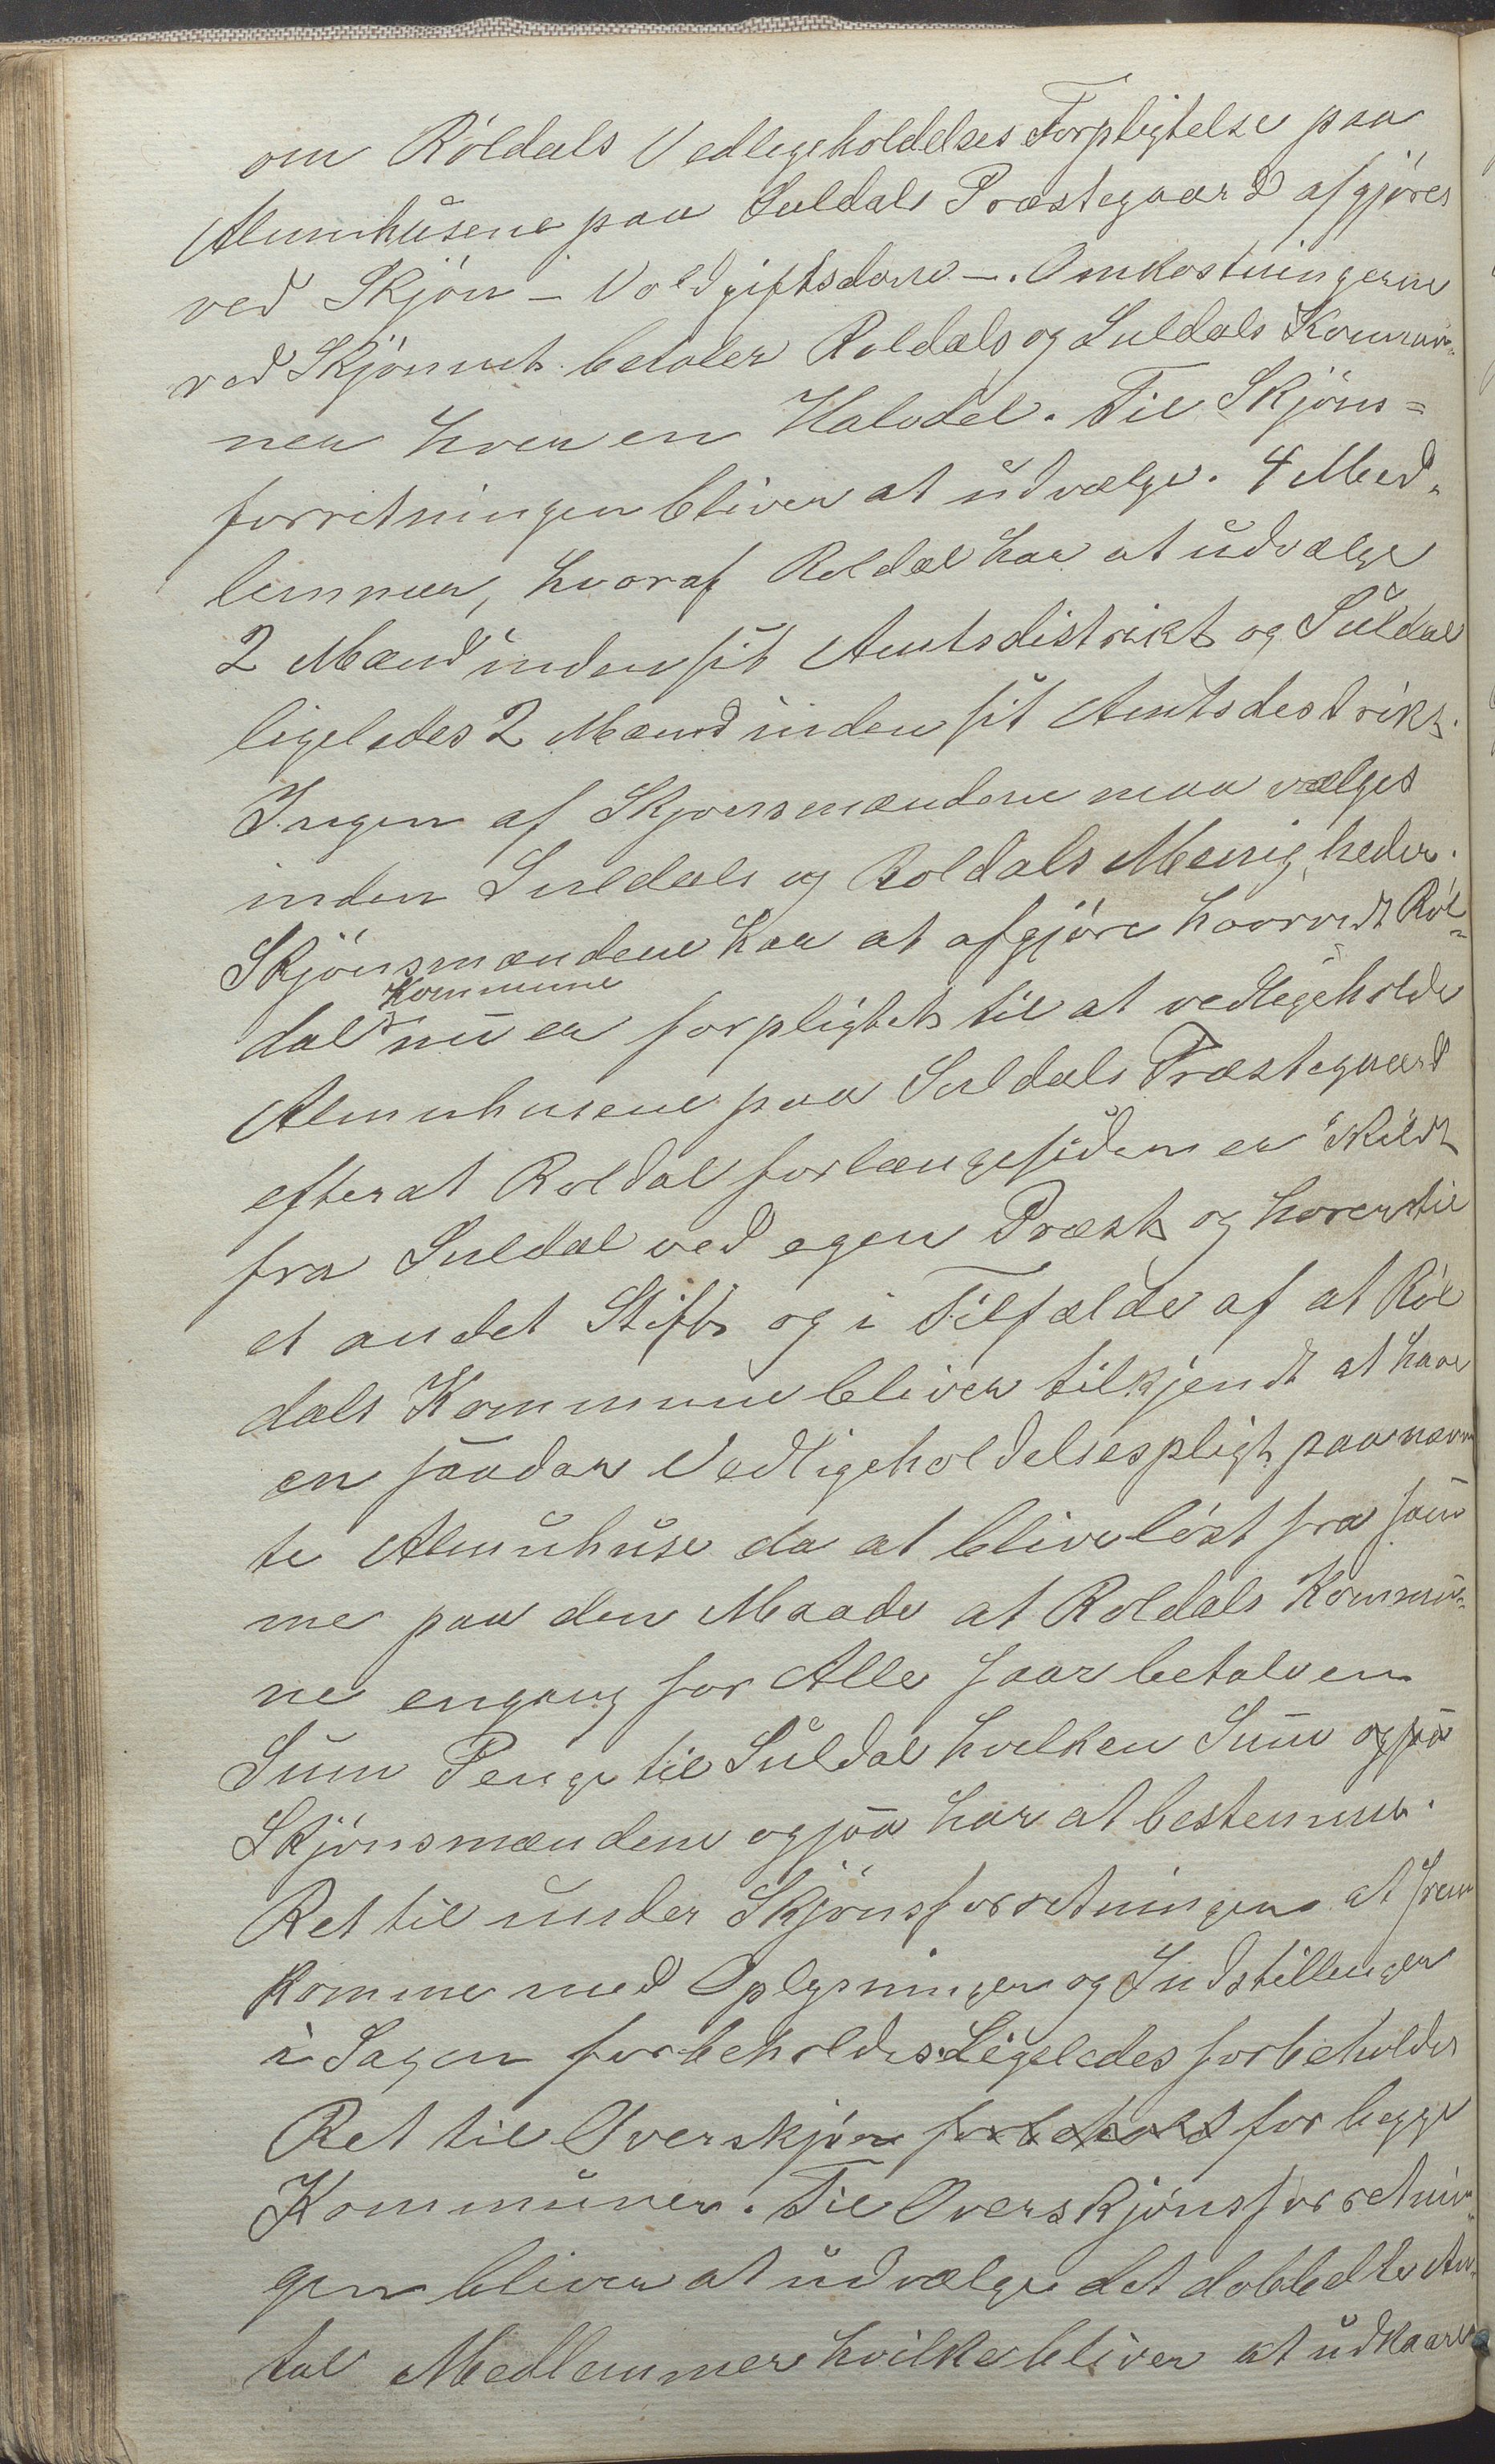 om Röldals Vedlegeholdelses Forpligtelse paa
Almuhusene paa Suldals Præstegaard afgjöres
ved Skjön – Voldgiftsdom –. Omkostningerne
ved Skjönnet betaler Roldals og Suldals Kommu-
ner hver en Halvdel. Til Skjöns=
forretningen bliver at udvælge. 4 Med-
lemmer, hvoraf Roldal har at udvælge
2 Mænd inden sit Amtsdistrikt og Suldal
ligeledes 2 Mænd inden sit Amtsdestrikt.
Ingen af Skjønsmændene maa vælges
inden Suldals og Roldals Menigheder.
Skjönsmændene har at afgjöre hvorvidt Röl=
dal Kommune nu er forpligtet til at vedlegeholde
Almuhusene paa Suldals Præstegaard
efterat Roldal forlængesiden er skildt
fra Suldal ved egen Præst og hører til
et andet Stift og i Tilfælde af at Röl
dals Kommune bliver tilkjendt at have
en saadan Vedligeholdelsespligt paa nævn
te Almuhuse da at blive löst fra sam
me paa den Maade at Roldals Kommu-
ne engang for Alle faar betale en
Sum Penge til Suldal hvilken Sum ogsaa
Skjönsmændene ogsaa har at bestemme.
Ret til under Skjönsforretningen at frem
komme med Oplysninger og Indstillinger
i Sagen forbeholdes. Ligeledes forbeholdes
Ret til Overskjön forbehold for begge
Kommuner. Til Overskjönsforretnin-
gen bliver at udvælge det dobbelte An-
tal Medlemmer hvilke bliver at udkaare